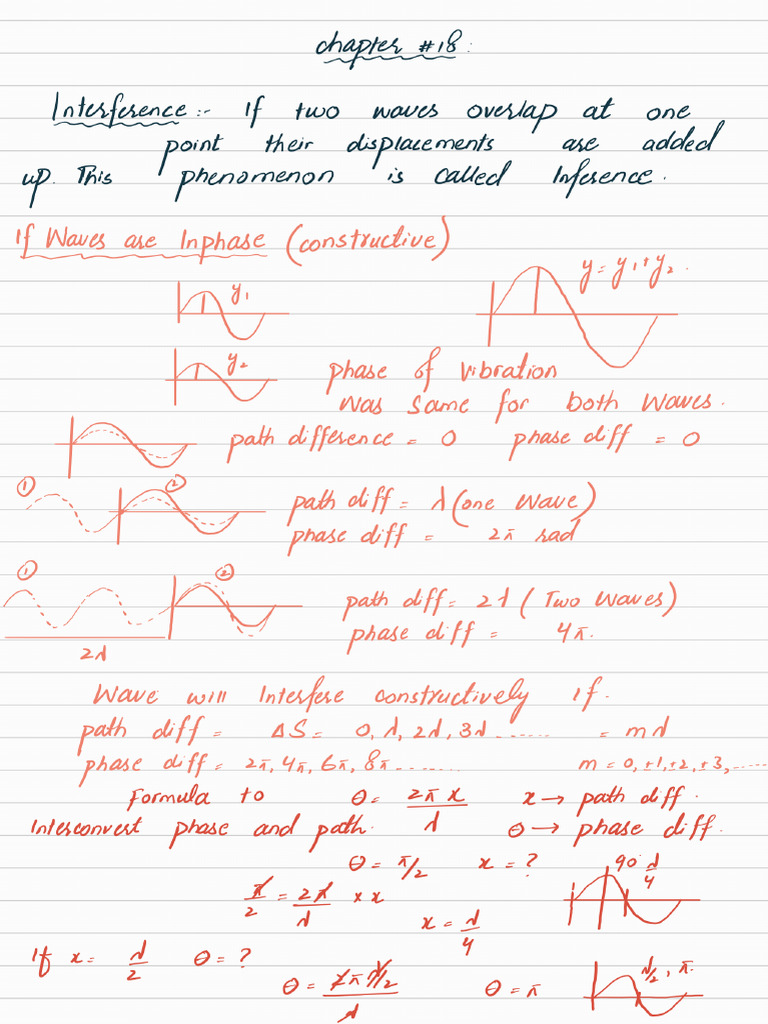 chapter #18:
Interference:- If two waves overlap at one
point their displacements are added
up. This phenomenon is called Inference.
If Waves are Inphase (constructive)
y₁
y = y₁+y₂.
y₂
phase of vibration
was same for both waves.
path difference = 0 phase diff = 0
① ②
path diff = λ (one wave)
phase diff = 2π rad
① ②
path diff = 2λ (Two waves)
phase diff = 4π.
2λ
Wave will Interfere constructively if.
path diff = ΔS = 0, λ, 2λ, 3λ ...... = mλ
phase diff = 2π, 4π, 6π, 8π ....... m = 0, ±1, ±2, ±3, .....
Formula to θ = 2πx/λ x → path diff.
Interconvert phase and path. θ → phase diff.
θ = π/2 x = ?
90° λ/4
π/2 = 2π/λ × x
x = λ/4
If x = λ/2 θ = ?
θ = 2πλ/2/λ θ = π
λ/2, π.